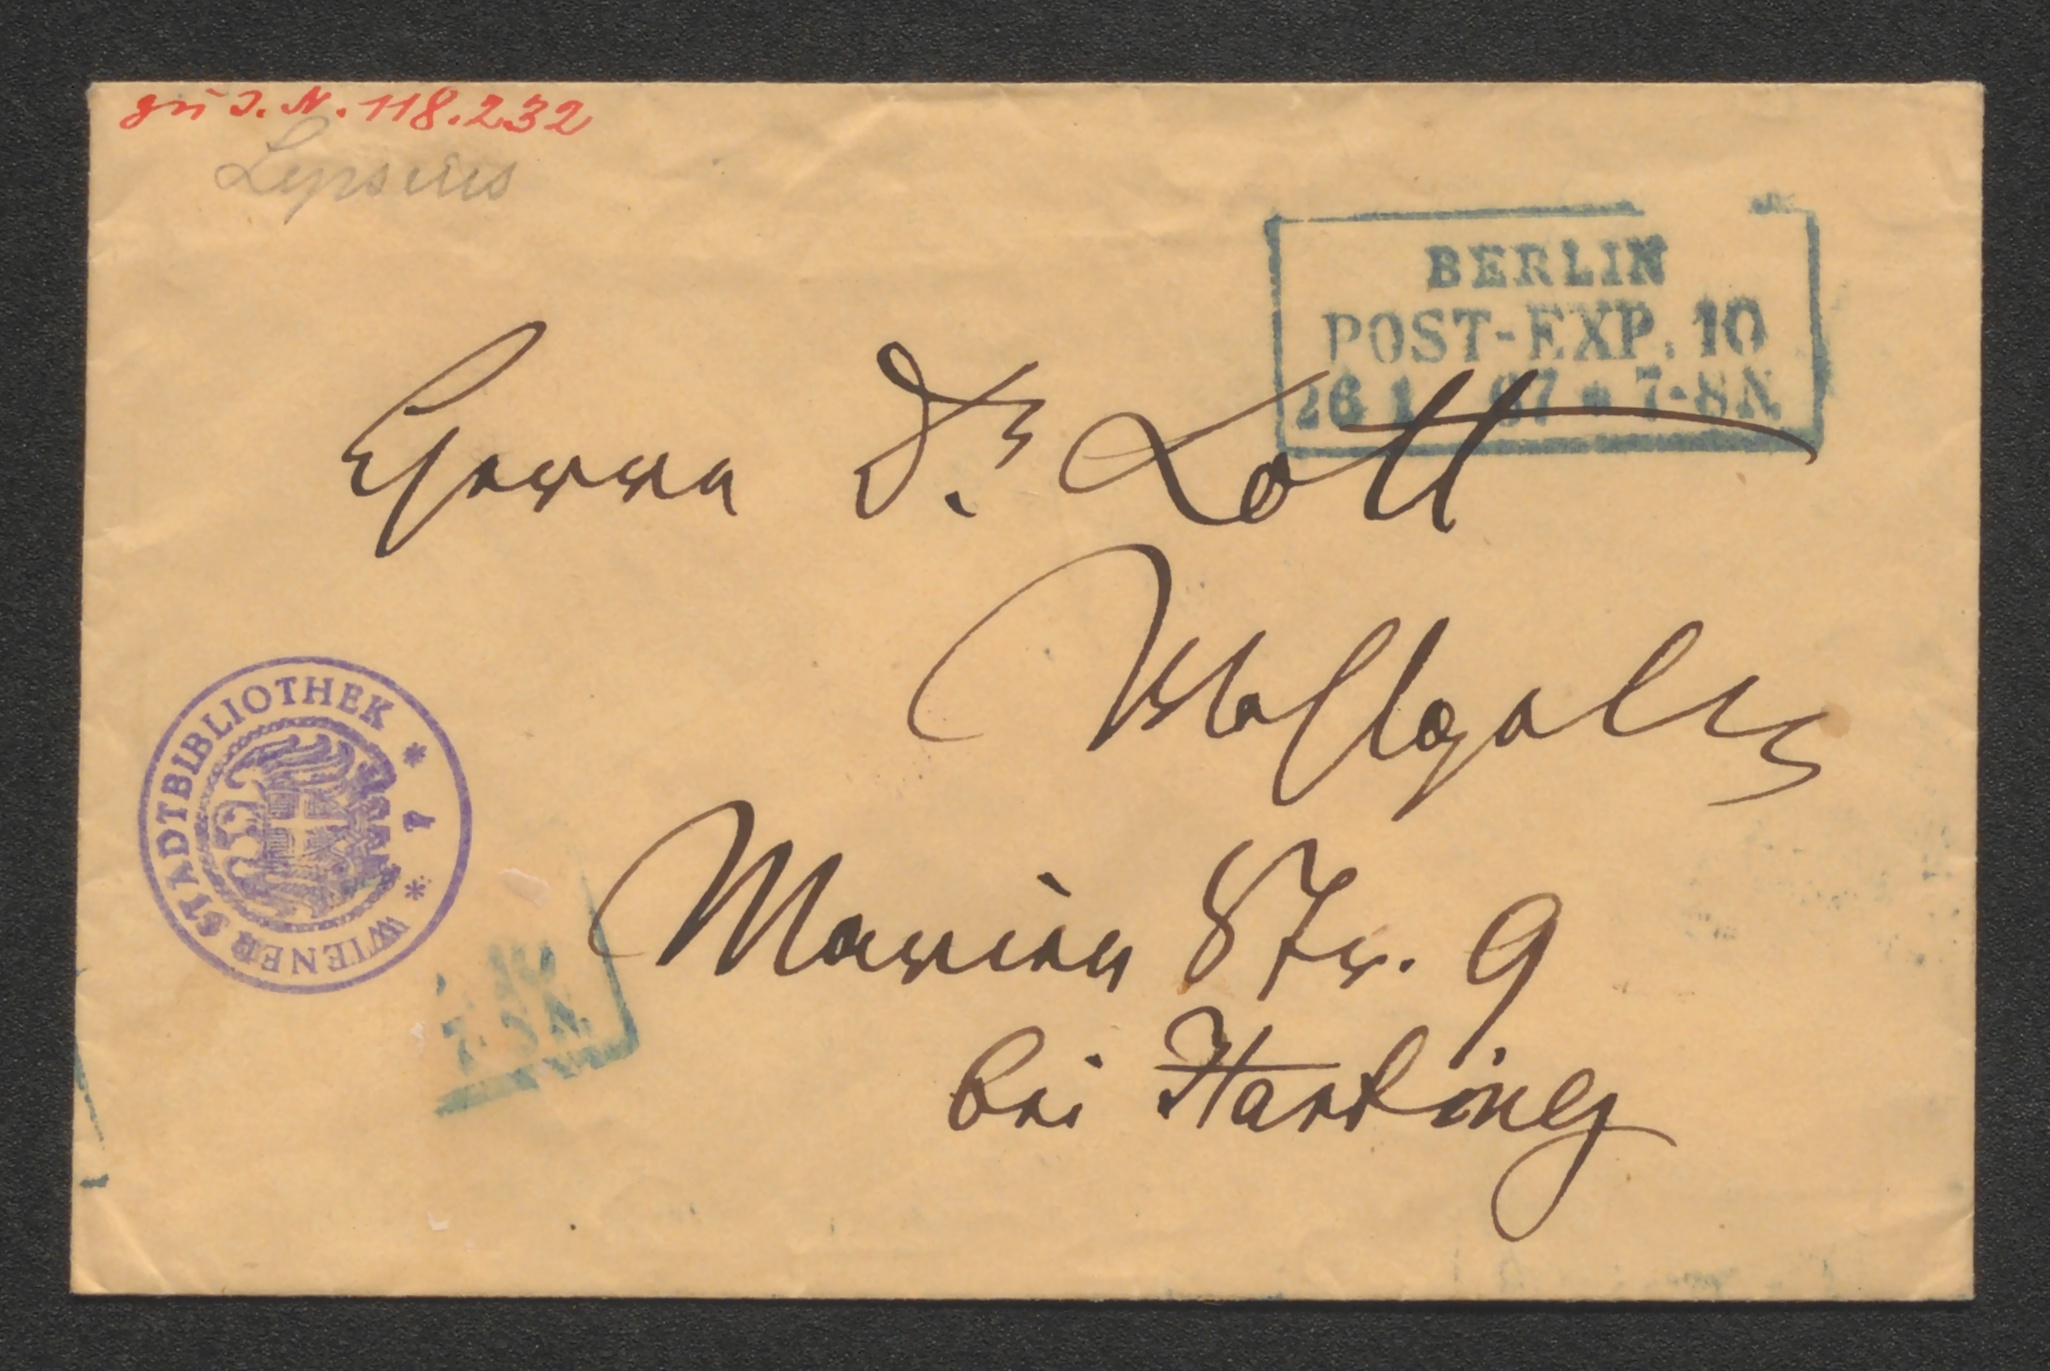 zu I. N. 118.232
Lepsius
BERLIN
POST-EXP. 10
26 1 67 * 7-8 N.
Herrn Dr. Lott
Wohlgeb.
Marien Str. 9
bei Harting
WIENER STADTBIBLIOTHEK
7-8 N.